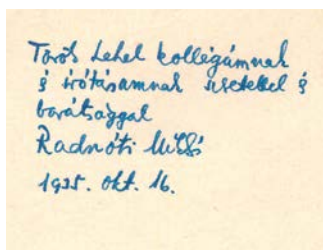 Török Lehel kollégámnak
és írótársamnak szeretettel és
barátsággal
Radnóti Miklós
1935. okt. 16.